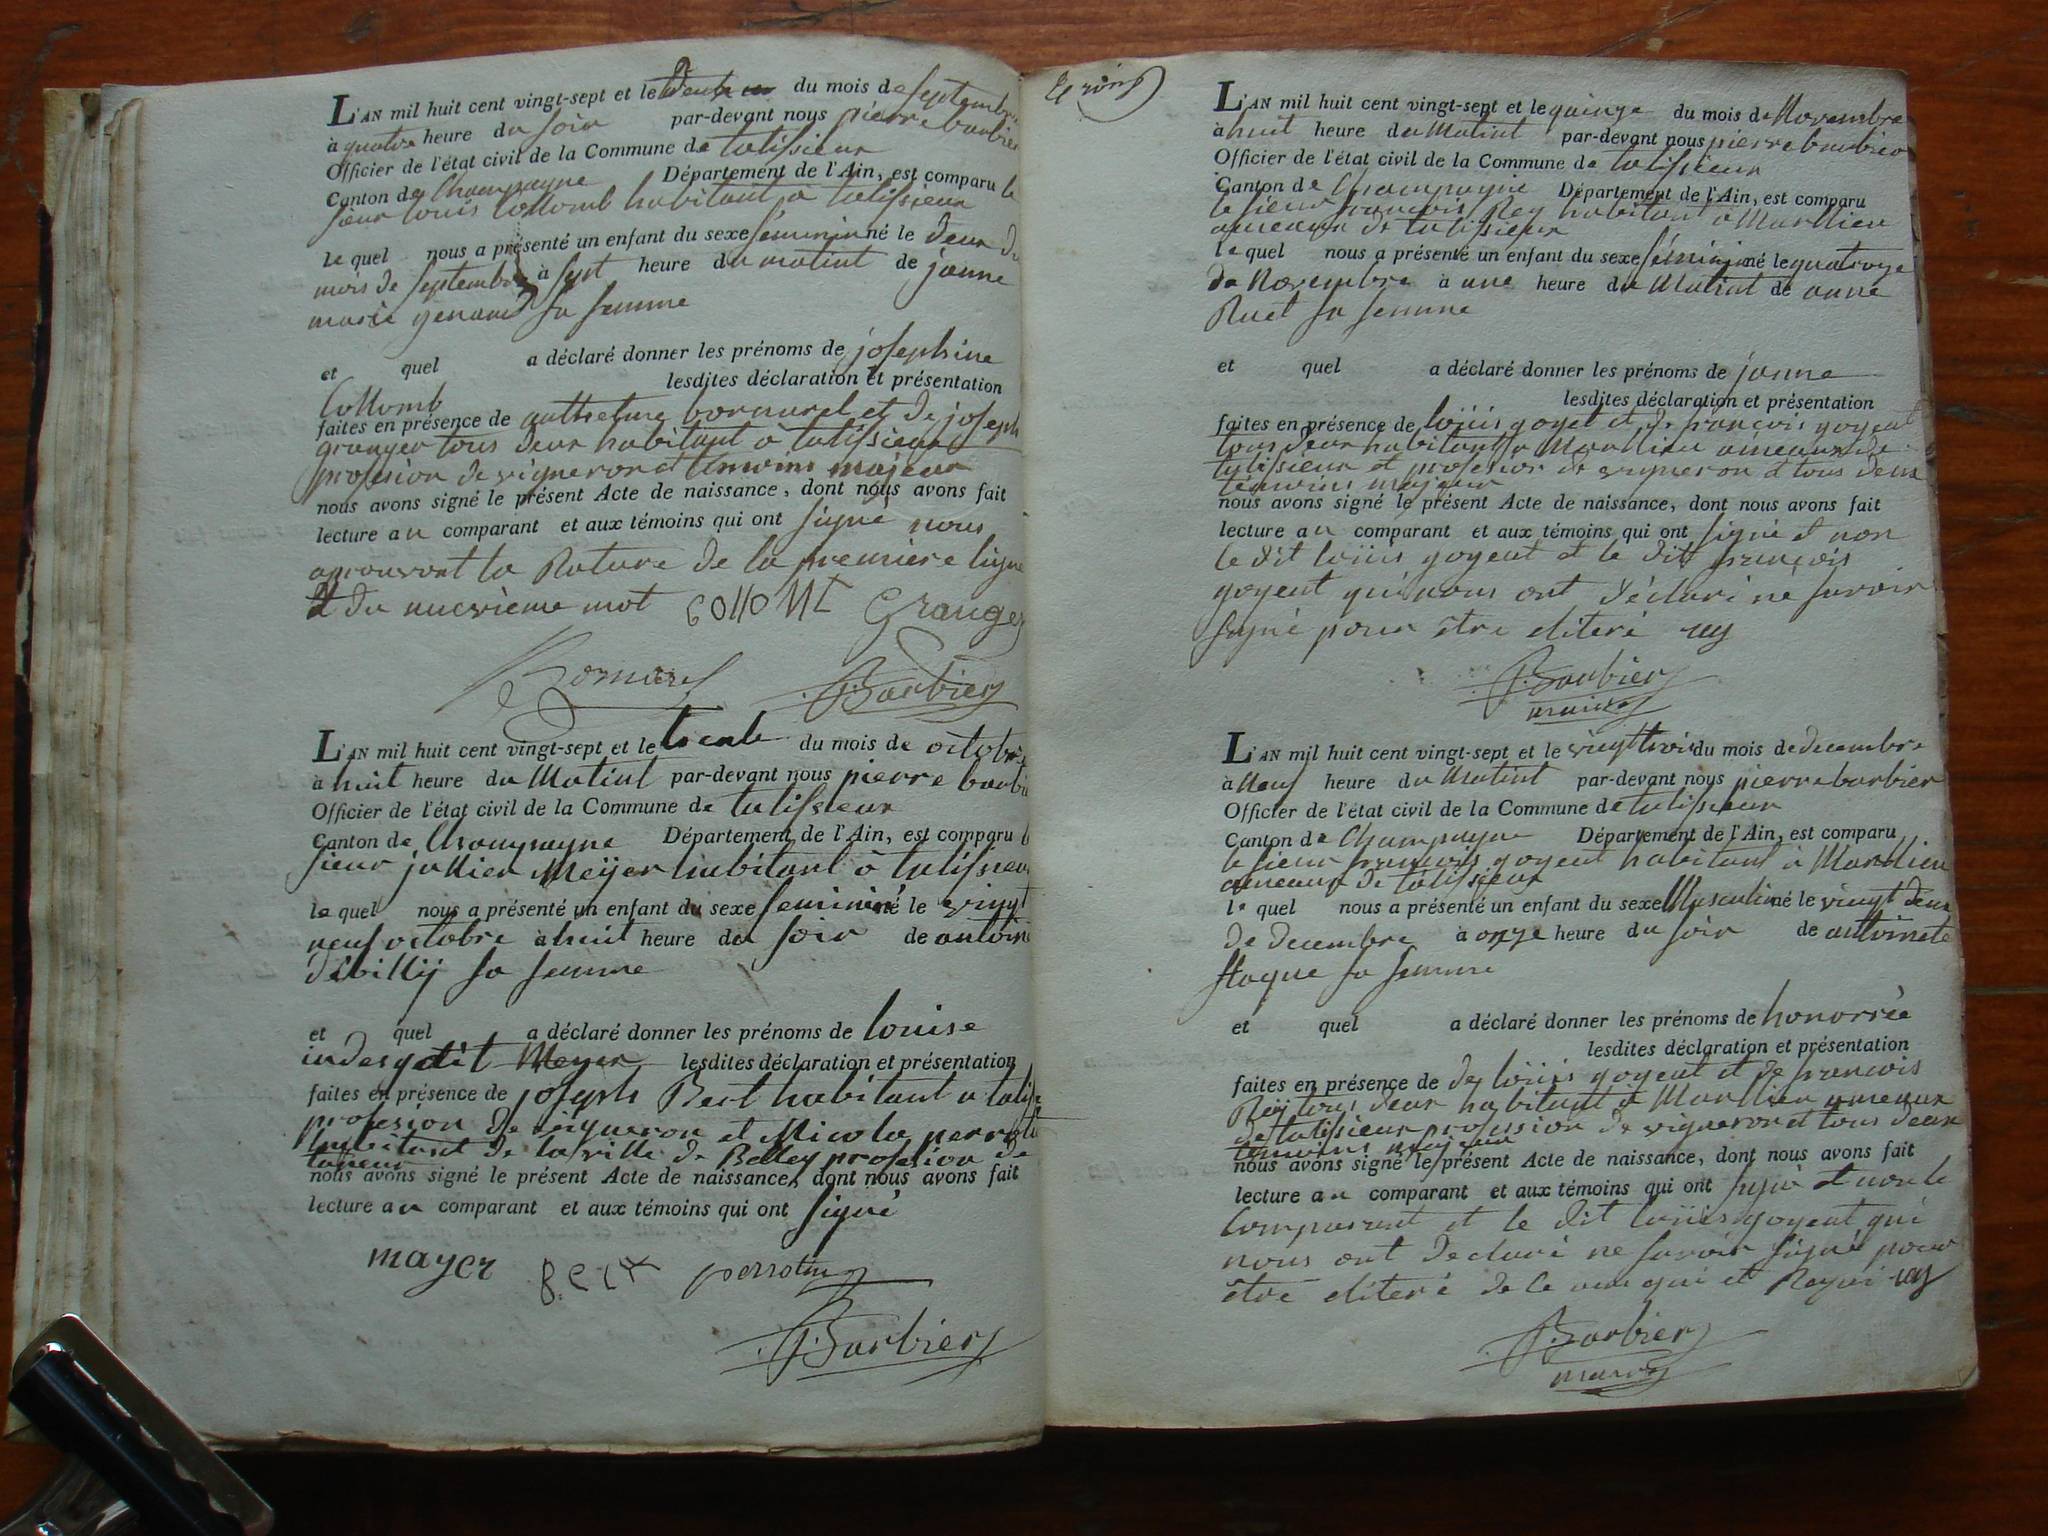 L'AN mil huit cent vingt-sept et le deux du mois de septembre
à quatre heure du soir par-devant nous pierre barbier
Officier de l'état civil de la Commune de talissieux
Canton de Champagne Département de l'Ain, est comparu le
sieur louis Collomb habitant à talissieux
le quel nous a présenté un enfant du sexe féminin né le deux du
mois de septembre à sept heure du matint de janne
marie genand sa femme
et quel a déclaré donner les prénoms de josephine
Collomb lesdites déclaration et présentation
faites en présence de bornarel et de joseph
granger tous deux habitant à talissieux
profesion de vigneron et temoins majeur
nous avons signé le présent Acte de naissance, dont nous avons fait
lecture au comparant et aux témoins qui ont signé nous
aprouvont la Rature de la premiere ligne
et du nuevieme mot Collomb Granger
Bornarel P. Barbier
L'AN mil huit cent vingt-sept et le trente du mois de octobre
à huit heure du Matint par-devant nous pierre barbier
Officier de l'état civil de la Commune de talissieux
Canton de Champagne Département de l'Ain, est comparu le
sieur Meÿer habitant à talissieux
le quel nous a présenté un enfant du sexe feminin né le vingt
neuf octobre à huit heure du soir de antoine
débillij sa femme
et quel a déclaré donner les prénoms de louise
Meyer lesdites déclaration et présentation
faites en présence de joseph Bect habitant a talissieux
profesion de vigneron et Nicola perrotin
habitant de la ville de Belley profesion de
nous avons signé le présent Acte de naissance, dont nous avons fait
lecture au comparant et aux témoins qui ont signé
mayer perrotin
P. Barbier
L'AN mil huit cent vingt-sept et le quinze du mois de Novembre
à huit heure du Matint par-devant nous pierre barbier
Officier de l'état civil de la Commune de talissieux
Canton de Champagne Département de l'Ain, est comparu
le sieur françois Rey habitant à Marllieu
ameaux de talissieux
le quel nous a présenté un enfant du sexe féminin né le quatorze
de Novembre à une heure du Matint de anne
Ruet sa femme
et quel a déclaré donner les prénoms de janne
lesdites déclaration et présentation
faites en présence de loüis goyet et de françois goyent
tous deux habitant à Marllieu ameaux de
talissieux et profesion de vigneron et tous deux
témoins majeur
nous avons signé le présent Acte de naissance, dont nous avons fait
lecture au comparant et aux témoins qui ont signé et non
le dit loüis goyent et le dit françois
goyent qui nous ont déclaré ne savoir
signé pour être élitéré rey
P. Barbier
maire
L'AN mil huit cent vingt-sept et le vingt trois du mois de decembre
à Neuf heure du Matint par-devant nous pierre barbier
Officier de l'état civil de la Commune de talissieux
Canton de Champagne Département de l'Ain, est comparu
le sieur françois goyent habitant à Marllieu
ameaux de talissieux
le quel nous a présenté un enfant du sexe Masculin né le vingt deux
de decembre à onze heure du soir de antoinete
sa femme
et quel a déclaré donner les prénoms de honorrée
lesdites déclaration et présentation
faites en présence de de loüis goyent et de francois
Reÿ tous deux habitant à Marllieu ameaux
de talissieux profession de vigneron et tous deux
temoins majeur
nous avons signé le présent Acte de naissance, dont nous avons fait
lecture au comparant et aux témoins qui ont signé et non le
Comparant et le dit loüis goyent qui
nous ont déclaré ne savoir signé pour
être élitéré de ce rey
P. Barbier
maire